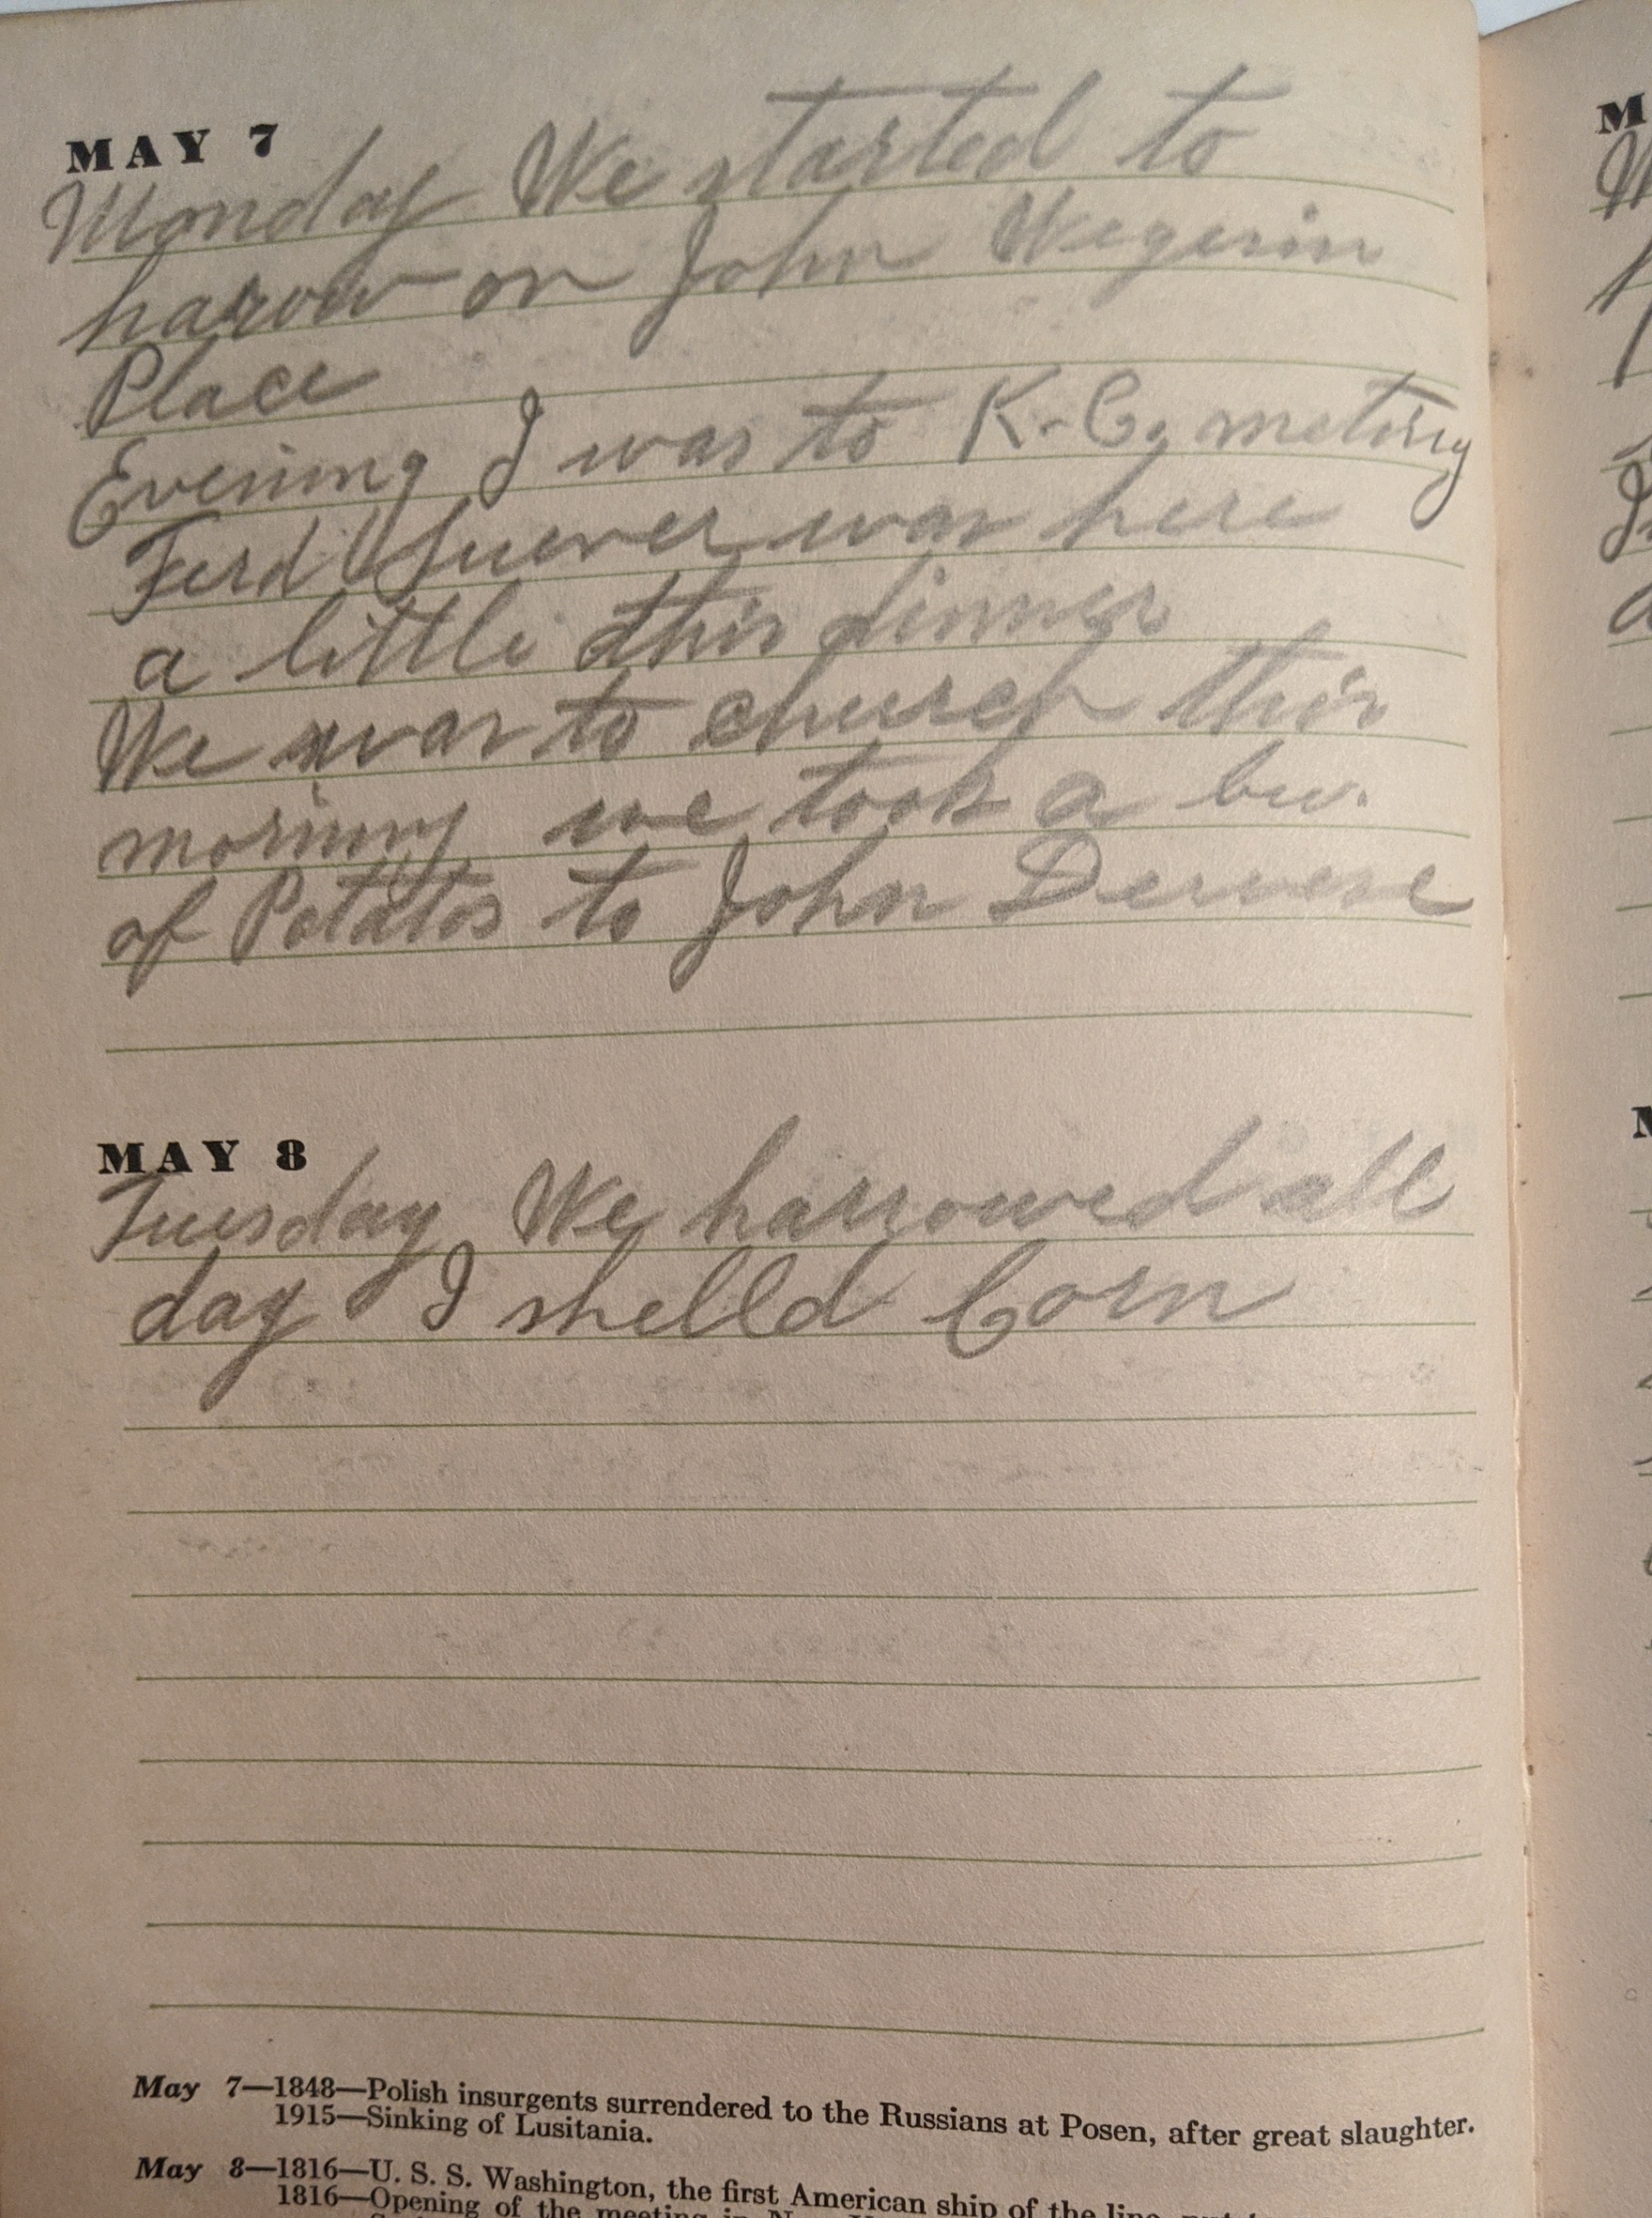 MAY 7
Monday We started to
harow on John Wegerin
Place
Evening I was to K.C. meting
Ferd Suever was here
a little this dinner
We was to church this
morning we took a bu.
of Potatos to John
MAY 8
Tuesday We harrowed all
day I shelld Corn
May 7—1848—Polish insurgents surrendered to the Russians at Posen, after great slaughter.
1915—Sinking of Lusitania.
May 8—1816—U. S. S. Washington, the first American ship of the line,
1816—Opening of the meeting in